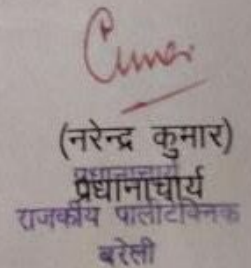 (नरेन्द्र कुमार)
प्रधानाचार्य
प्रधानाचार्य
राजकीय पालीटेक्निक
बरेली